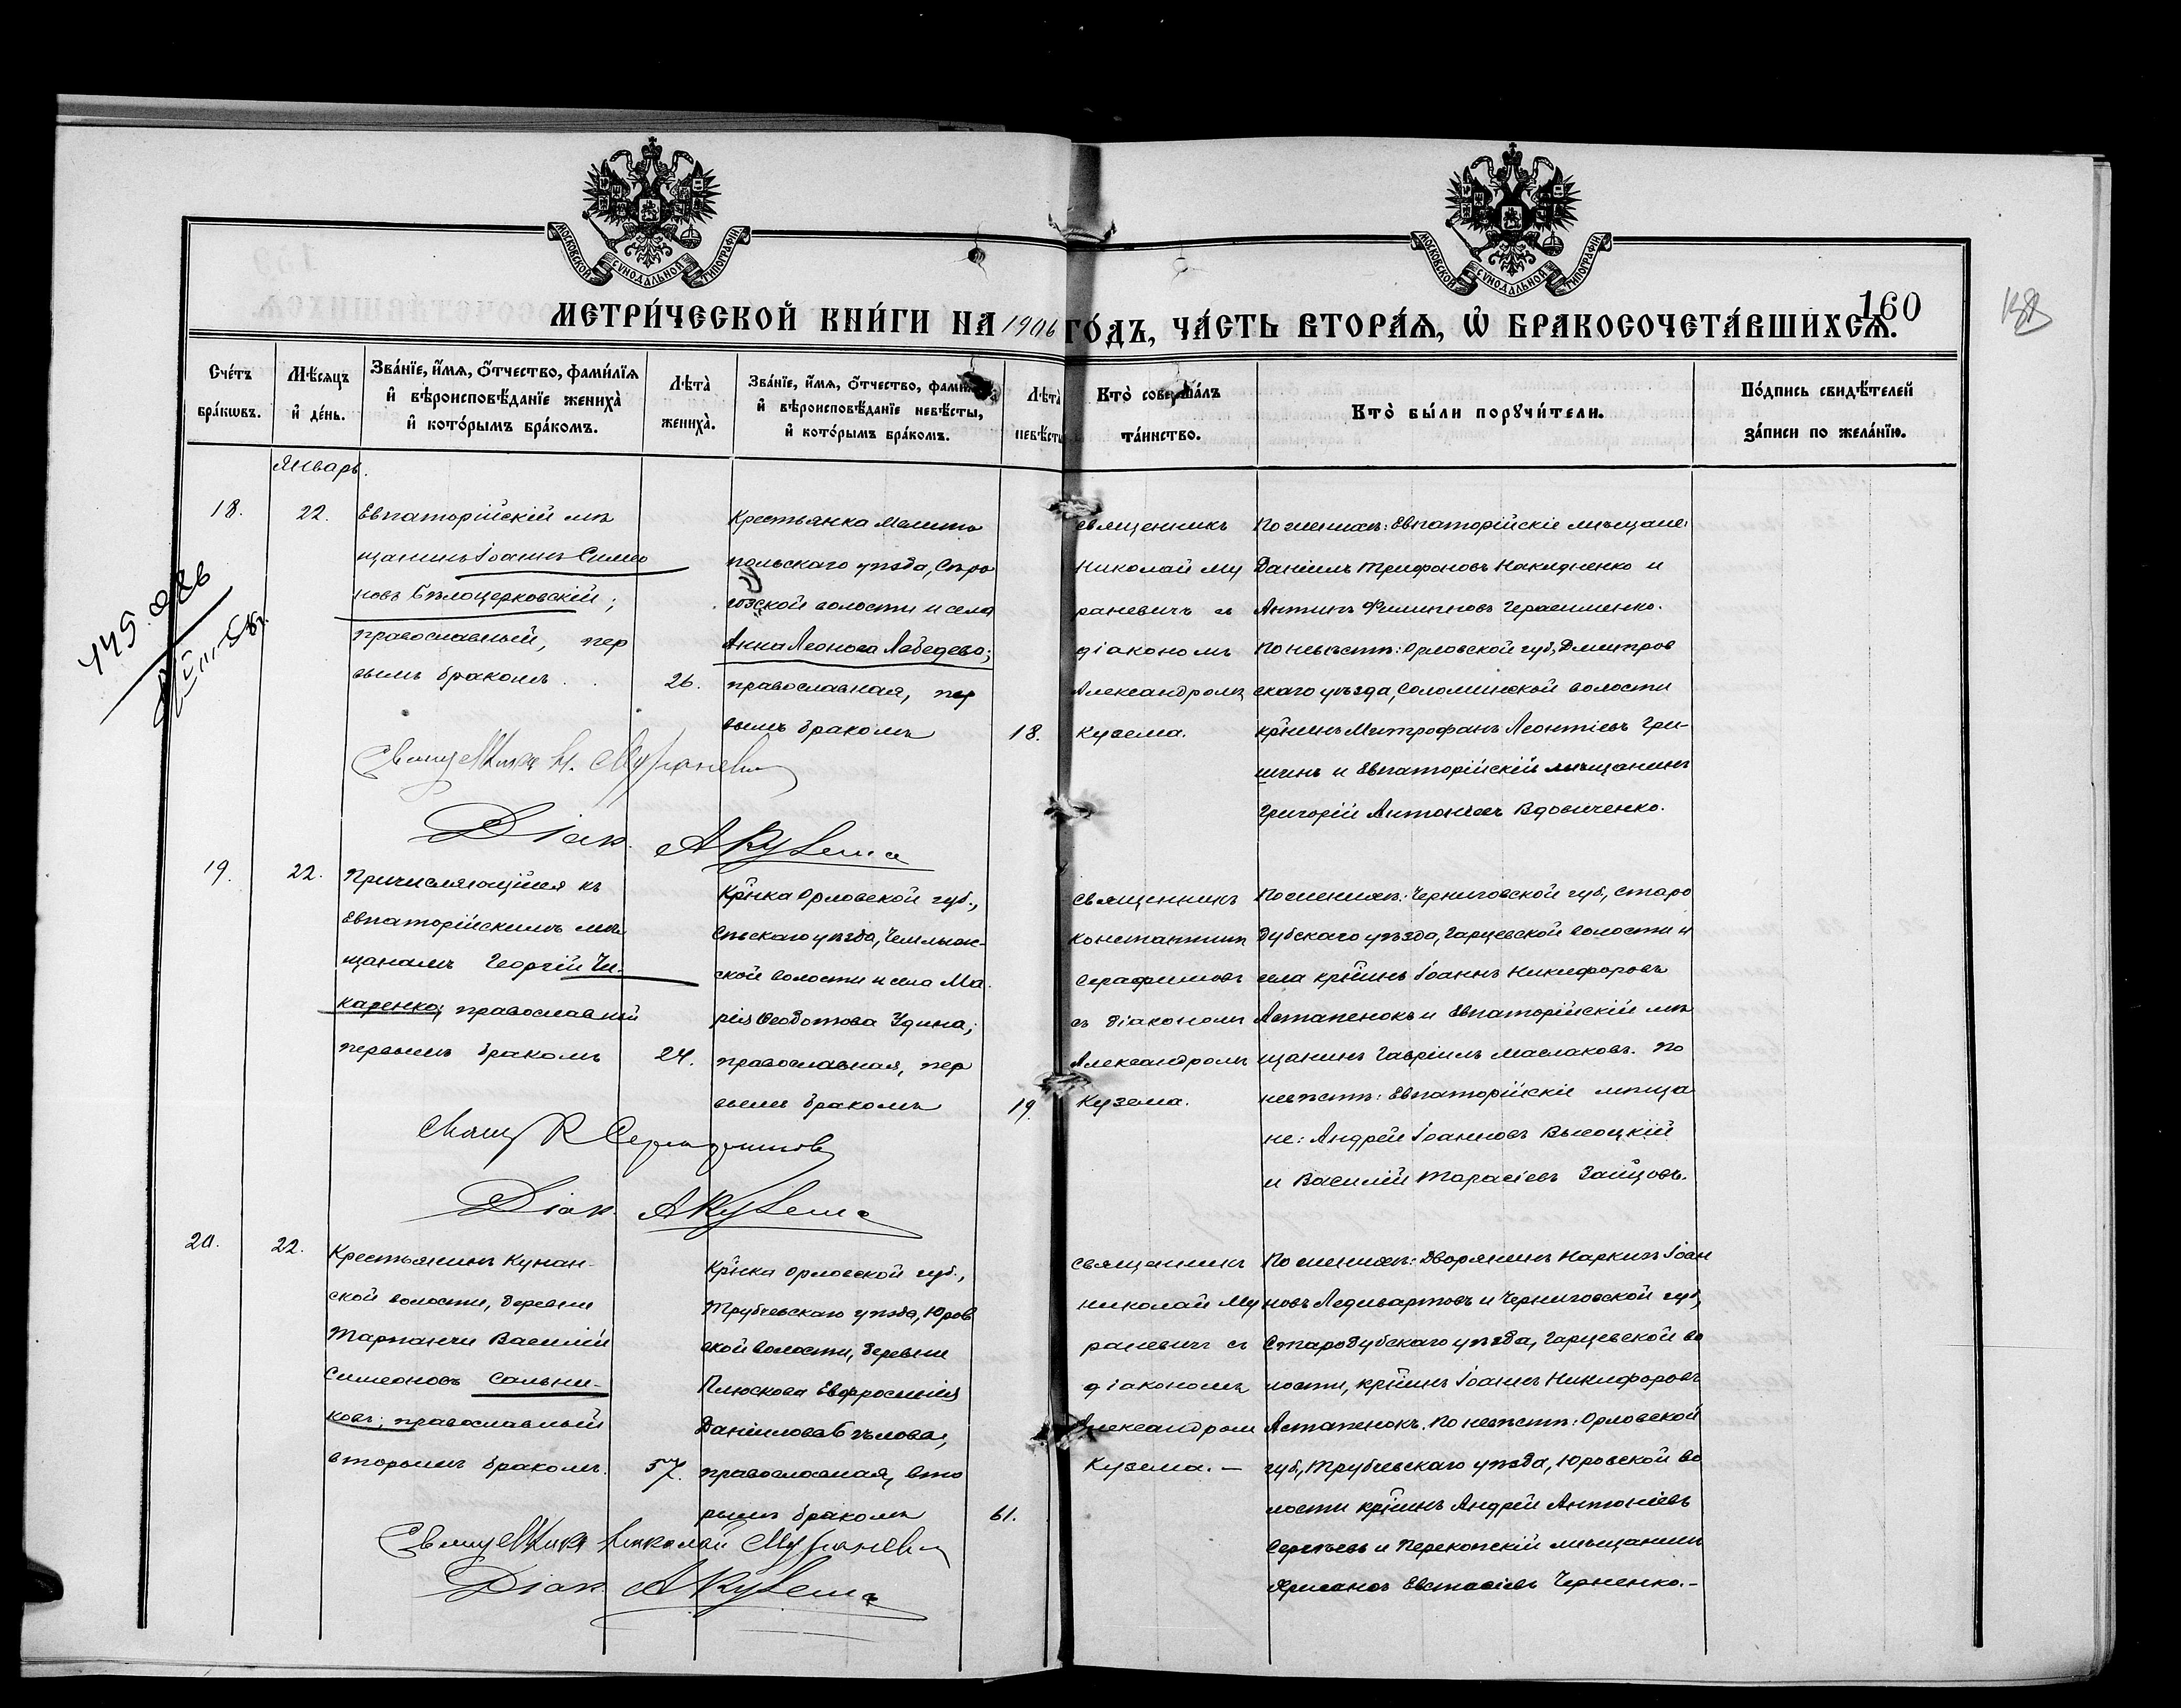 МОСКОВСКОЙ СѴНОДАЛЬНОЙ ТИПОГРАФІИ
МОСКОВСКОЙ СѴНОДАЛЬНОЙ ТИПОГРАФІИ
МЕТРИ́ЧЕСКОЙ КНИ́ГИ НА 1906 ГО́ДЪ, ЧА́СТЬ ВТОРА́Я, Ѡ҆ БРАКОСОЧЕТА́ВШИХСЯ.
160
Сче́тъ бра́кѡвъ.
Мѣ́сяцъ и҆ де́нь.
Зва́нїе, и҆́мя, ѻ҆́тчество, фами́лїя и҆ вѣроисповѣ́данїе жениха̀ и҆ кото́рымъ бра́комъ.
Лѣта̀ жениха̀.
Зва́нїе, и҆́мя, ѻ҆́тчество, фами́лїя и҆ вѣроисповѣ́данїе невѣ́сты, и҆ кото́рымъ бра́комъ.
Лѣта̀ невѣ́сты
Кто̀ соверша́лъ та́инство.
Кто̀ бы́ли порꙋчи́тели.
По́дпись свидѣ́телей за́писи по жела́нїю.
Январь.
18.
22.
Евпаторійскій мѣ
щанинъ Іоаннъ Симео
новъ Бѣлоцерковскій;
православный, пер
вымъ бракомъ.
26.
Крестьянка Мелито
польскаго уѣзда, Сѣро
гозской волости и села
Анна Леонова Лебедева;
православная, пер
вымъ бракомъ
18.
Священникъ
Николай Му
раневичъ съ
діакономъ
Александромъ
Кузема.
По женихѣ: Евпаторійскіе мѣщане:
Даніилъ Трифоновъ Накидненко и
Антипъ Филипповъ Герасименко.
По невѣстѣ: Орловской губ., Дмитров
скаго уѣзда, Соломинской волости
кр̃нинъ Митрофанъ Леонтіевъ Гри-
шинъ и Евпаторійскій мѣщанинъ
Григорій Антоніевъ Вдовиченко.
Священникъ Н. Мураневич
Діак. А Кузема
19.
22.
Причисляющійся къ
Евпаторійскимъ мѣ
щанамъ Георгій Чи-
каренко; православный
первымъ бракомъ
24.
Кр̃нка Орловской губ.,
Сѣвскаго уѣзда, Чемлыж-
ской волости и села Ма-
рія Ѳеодотова Удина;
православная, пер
вымъ бракомъ
19.
Священникъ
Константинъ
Серафимовъ
съ діакономъ
Александромъ
Кузема.
По женихѣ: Черниговской губ., Старо
дубскаго уѣзда, Гарцевской волости и
села кр̃нинъ Іоаннъ Никифоровъ
Астапенокъ и Евпаторійскій мѣ
щанинъ Гавріилъ Маслаковъ. По
невѣстѣ: Евпаторійскіе мѣща
не: Андрей Іоанновъ Высоцкій
и Василій Тарасіевъ Зайцовъ.
Свящ К Серафимовъ
Діак. А Кузема
20.
22.
Крестьянинъ Кунан-
ской волости, деревни
Тарпанчи Василій
Симеоновъ Сальни-
ковъ; православный
вторымъ бракомъ.
57.
Кр̃нка Орловской губ.,
Трубчевскаго уѣзда, Юров
ской волости, деревни
Плюскова Евфросинія
Даниилова Бѣлова;
православная, вто
рымъ бракомъ
61.
Священникъ
Николай Му
раневичъ съ
діакономъ
Александромъ
Кузема.—
По женихѣ: Дворянинъ Наркизъ Іоан
новъ Ледивартовъ и Черниговской губ.,
Стародубскаго уѣзда, Гарцевской во
лости, кр̃нинъ Іоаннъ Никифоровъ
Астапенокъ. По невѣстѣ: Орловской
губ., Трубчевскаго уѣзда, Юровской во
лости кр̃нинъ Андрей Антоніевъ
Сергѣевъ и Перекопскій мѣщанинъ
Хрисанѳъ Евстафіевъ Черненко.—
Священникъ Николай Мураневич
Діак. А Кузема